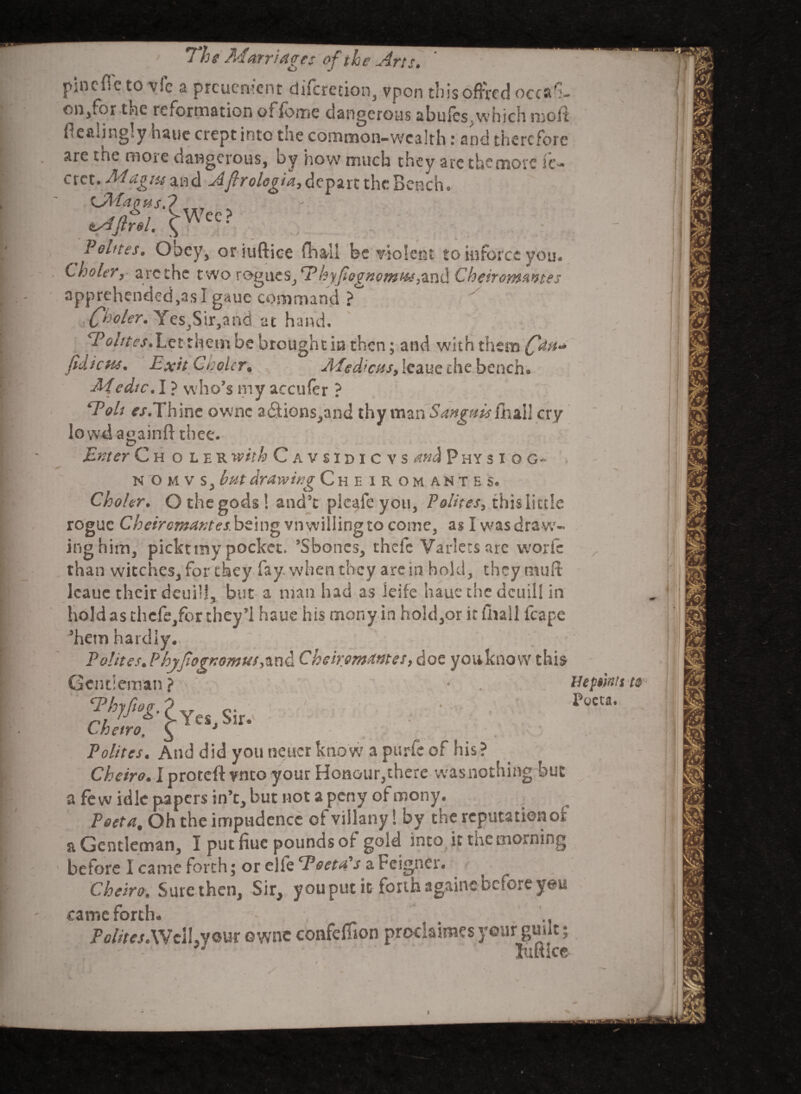 The Marriages of the Arts.
pineſſe to vſe a preuenient diſcretion, vpon this offred occaſi-
on, for the reformation of ſome dangerous abuſes, which moſt
ſtealingly haue crept into the common-wealth: and therefore
are the more dangerous, by how much they are the more ſe-
cret. Magus and Aſtrologia, depart the Bench.
Magus. }
Aſtrol. } Wee?
Polites. Obey, or iuſtice ſhall be violent to inforce you.
Choler, are the two rogues, Phyſiognomus, and Cheiromantes
apprehended, as I gaue command?
Choler. Yes, Sir, and at hand.
Polites. Let them be brought in then; and with them Cau-
ſidicus. Exit Choler. Medicus, leaue the bench.
Medic. I? who's my accuſer?
Polites. Thine owne actions, and thy man Sanguis ſhall cry
lowd againſt thee.
Enter CHOLER with CAVSIDICVS and PHYSIOG-
NOMVS, but drawing CHEIROMANTES.
Choler. O the gods! and't pleaſe you, Polites, this little
rogue Cheiromantes being vnwilling to come, as I was draw-
ing him, pickt my pocket. 'Sbones, theſe Varlets are worſe
than witches, for they ſay when they are in hold, they muſt
leaue their deuill, but a man had as leife haue the deuill in
hold as theſe, for they'l haue his mony in hold, or it ſhall ſcape
'hem hardly.
Polites. Phyſiognomus, and Cheiromantes, doe you know this
Gentleman? He points to
Poeta.
Phyſiog. }
Cheiro. } Yes, Sir.
Polites. And did you neuer know a purſe of his?
Cheiro. I proteſt vnto your Honour, there was nothing but
a few idle papers in't, but not a peny of mony.
Poeta. Oh the impudence of villany! by the reputation of
a Gentleman, I put fiue pounds of gold into it the morning
before I came forth; or elſe Poeta's a Feigner.
Cheiro. Sure then, Sir, you put it forth againe before you
came forth.
Polites. Well, your owne confeſſion proclaimes your guilt;
Iuſtice